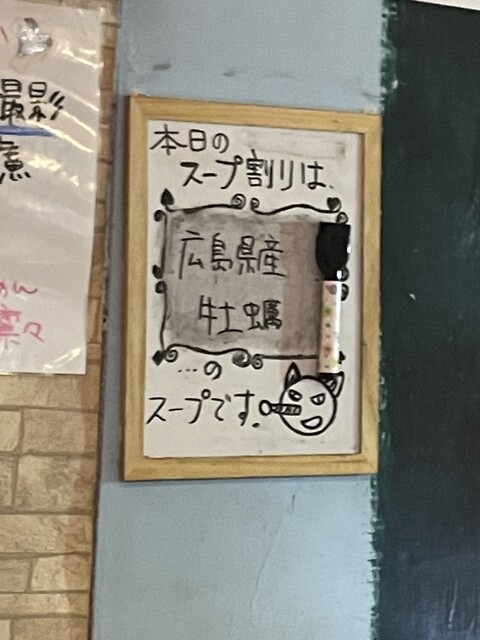 本日の
スープ割りは、
広島県産
牡蠣
…の
スープです。
撮影